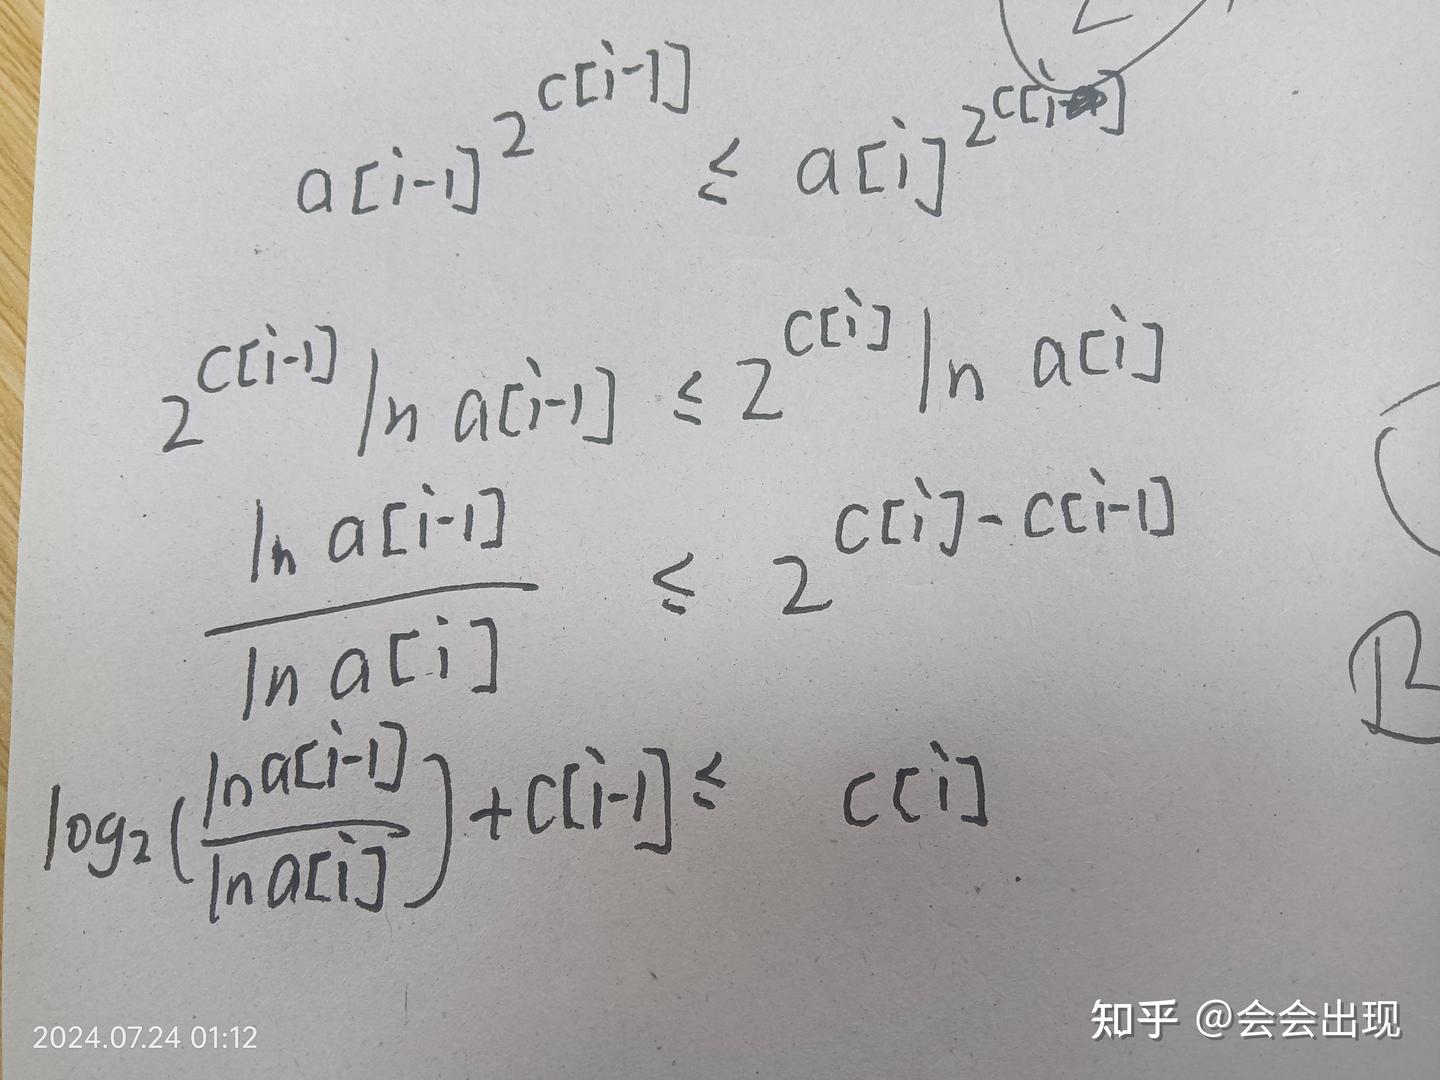 a[i-1]^2^c[i-1] ≤ a[i]^2^c[i]
2^c[i-1] ln a[i-1] ≤ 2^c[i] ln a[i]
ln a[i-1] / ln a[i] ≤ 2^c[i]-c[i-1]
log₂(ln a[i-1] / ln a[i]) + c[i-1] ≤ c[i]
B
2024.07.24 01:12
知乎 @会会出现